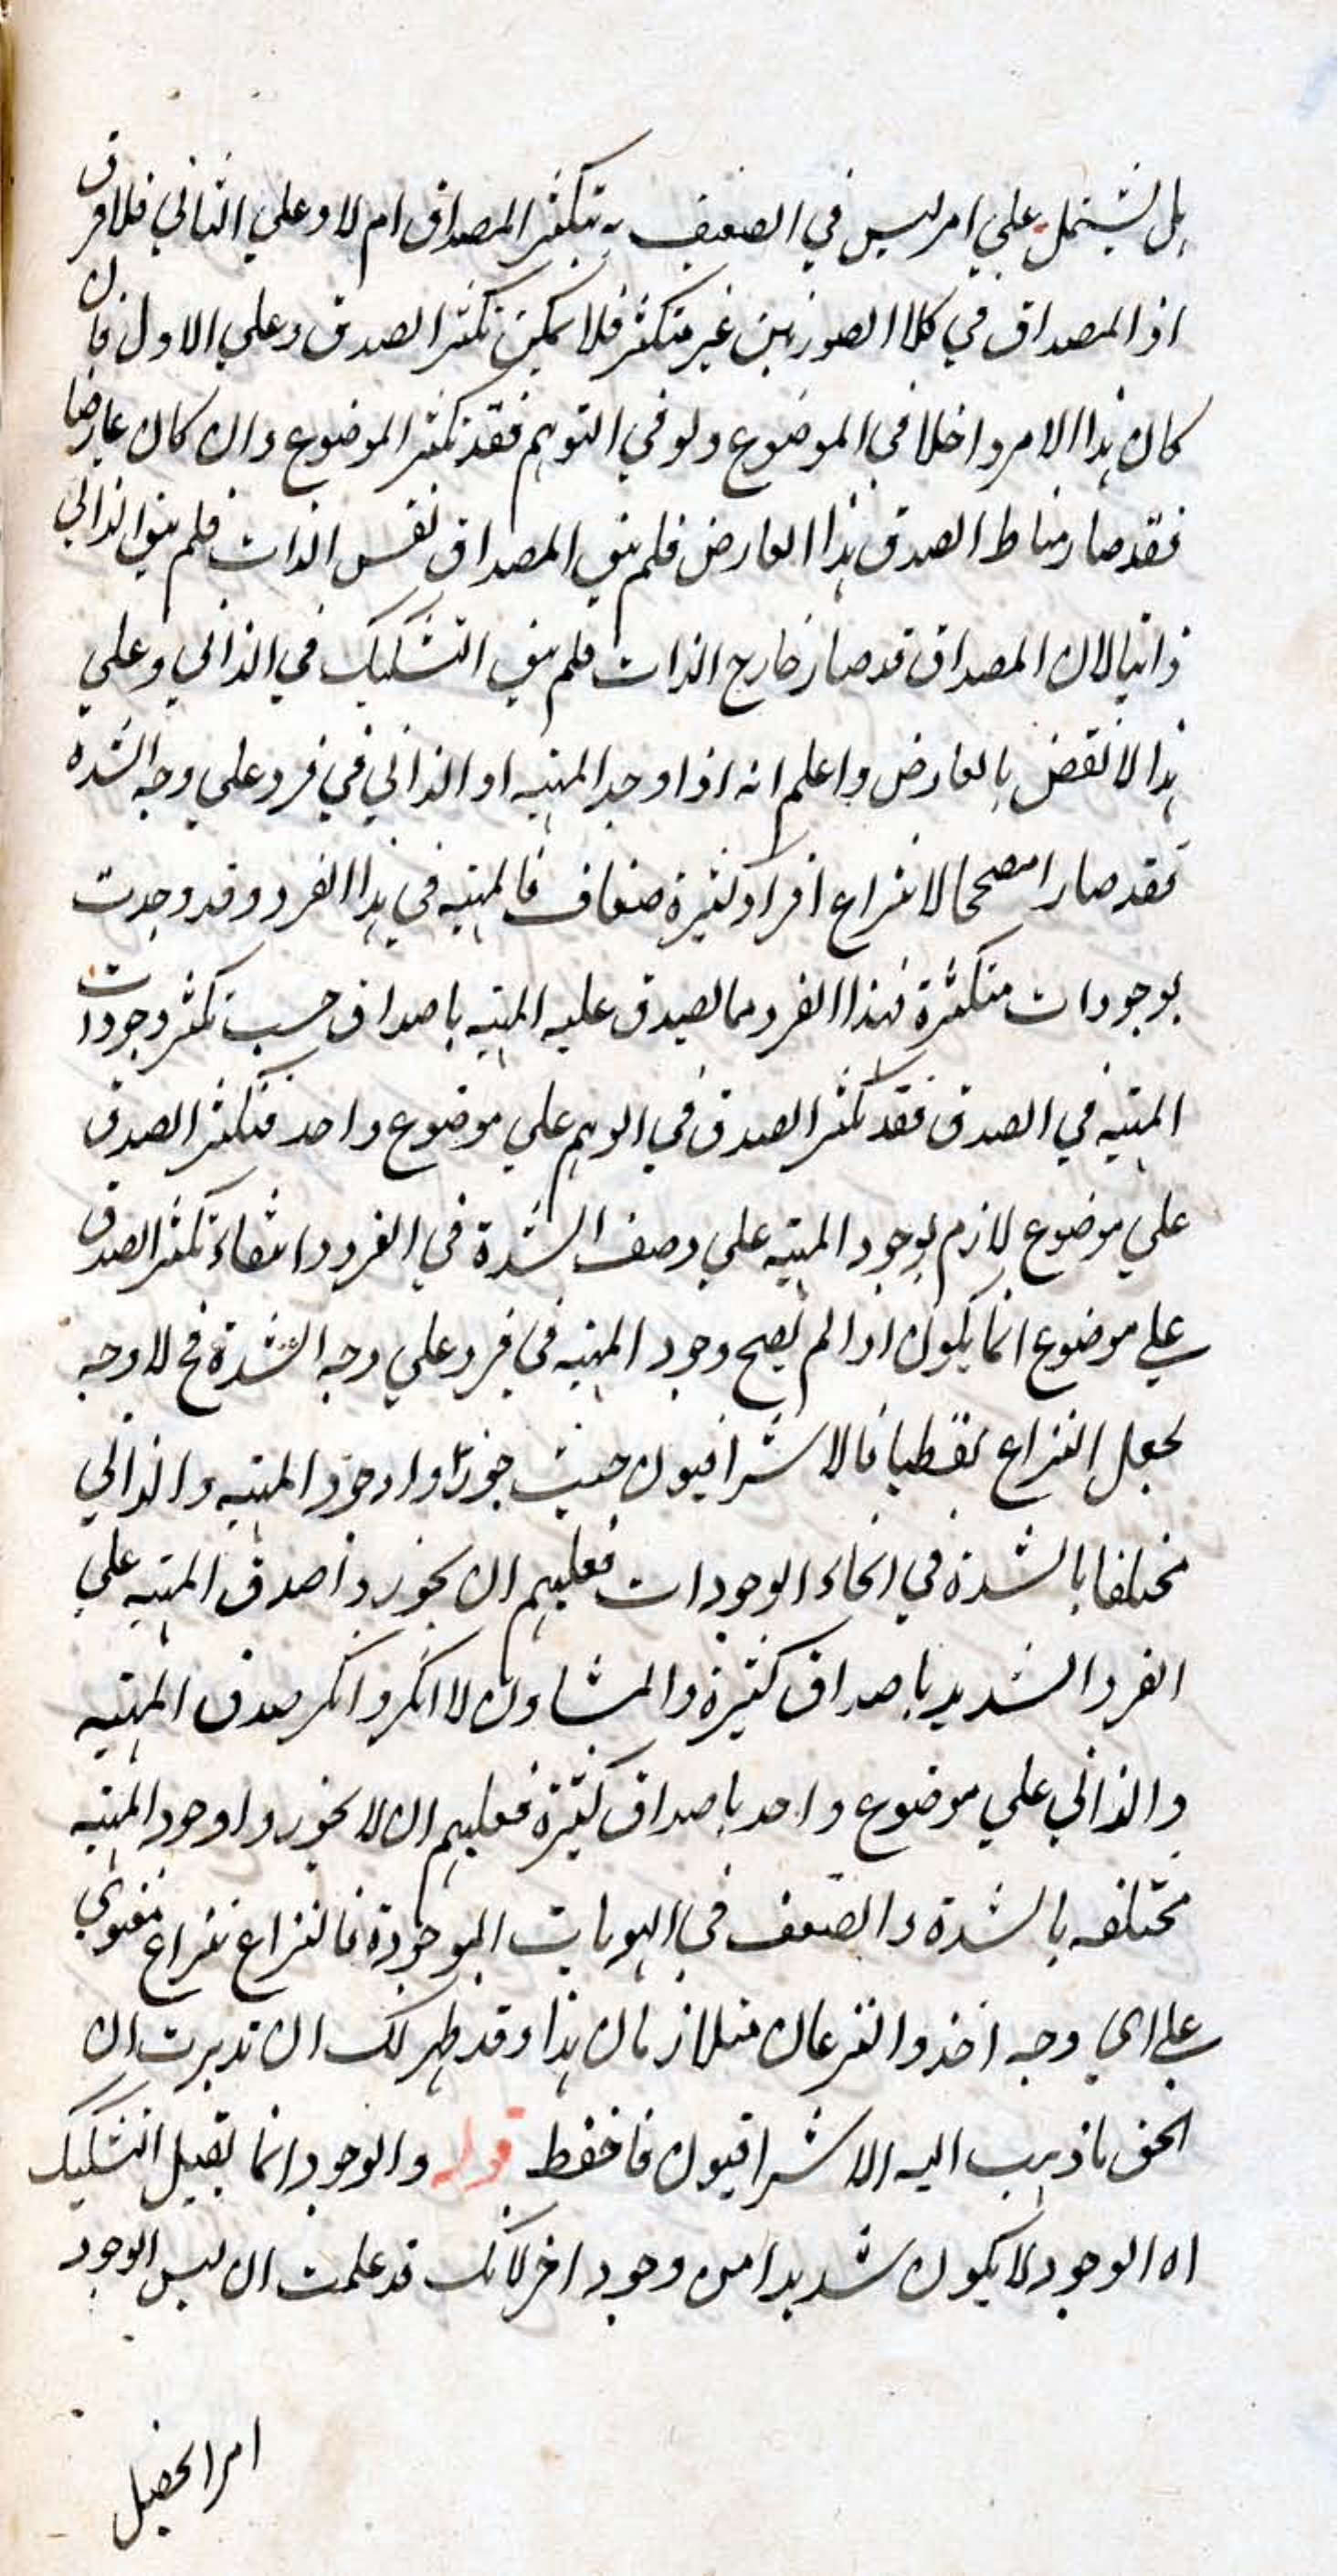 بل يشتمل علي امر ليس في الضعيف به يتكثر المصداق ام لا وعلي الثاني فلا فرق
اذ المصداق في كلا الصورتين غير متكثر فلا يمكن تكثر الصدق وعلي الاول فان
كان هذا الامر داخلا في الموضوع ولو في التوهم فقد تكثر الموضوع وان كان عارضا
فقد صار مناط الصدق هذا العارض فلم يبق المصداق نفس الذات فلم يبق الذاتي
ذاتيا لان المصداق قد صار خارج الذات فلم يبق التشكيك في الذاتي وعلي
هذا لا نقض بالعارض واعلم انه اذا وجد المهية او الذاتي في فرد علي وجه الشدة
فقد صار مصححا لانتزاع افراد كثيرة ضعاف فالمهية في هذا الفرد وقد وجدت
بوجودات متكثرة فهذا الفرد مما يصدق عليه المهية باصداق حسب تكثر وجودات
المهية في الصدق فقد تكثر الصدق في الوهم علي موضوع واحد فتكثر الصدق
علي موضوع لازم لوجود المهية علي وصف الشدة في الفرد وانتفاء تكثر الصدق
علي موضوع انما يكون اذا لم يصح وجود المهية في فرد علي وجه الشدة فح لا وجه
لجعل النزاع لفظيا فالاشراقيون حيث جوزوا وجود المهية والذاتي
مختلفا بالشدة في انحاء الوجودات فعليهم ان يجوزوا صدق المهية علي
الفرد الشديد باصداق كثيرة والمشاؤن لا انكروا انكر صدق المهية
والذاتي علي موضوع واحد باصداق كثيرة فعليهم ان لا يجوزوا وجود المهية
مختلفه بالشدة والضعف في الهويات الموجودة فالنزاع نزاع معنوي
علي اي وجه اخذ والنزعان متلازمان هذا وقد ظهر لك ان تدبرت ان
الحق ما ذهب اليه الاشراقيون فاحفظ قوله والوجود انما يقبل التشكيك
اه الوجود لا يكون شديدا من وجود اخر لانك قد علمت ان ليس الوجود
امرا يحصل